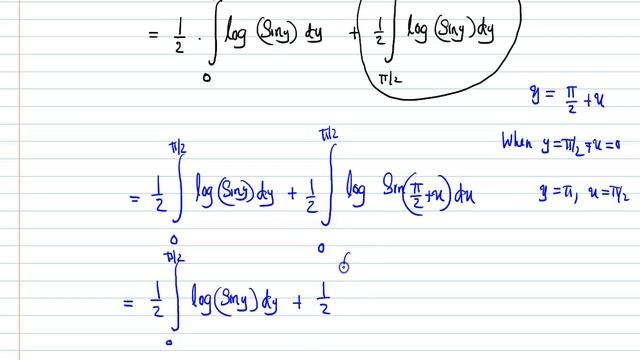 = 1/2 . ∫ log (Siny) dy + 1/2 ∫ log (Siny) dy
0 π/2
y = π/2 + u
When y = π/2 → u = 0
y = π, u = π/2
= 1/2 ∫₀^{π/2} log(Siny) dy + 1/2 ∫₀^{π/2} log Sin(π/2 + u) du
= 1/2 ∫₀^{π/2} log(Siny) dy + 1/2